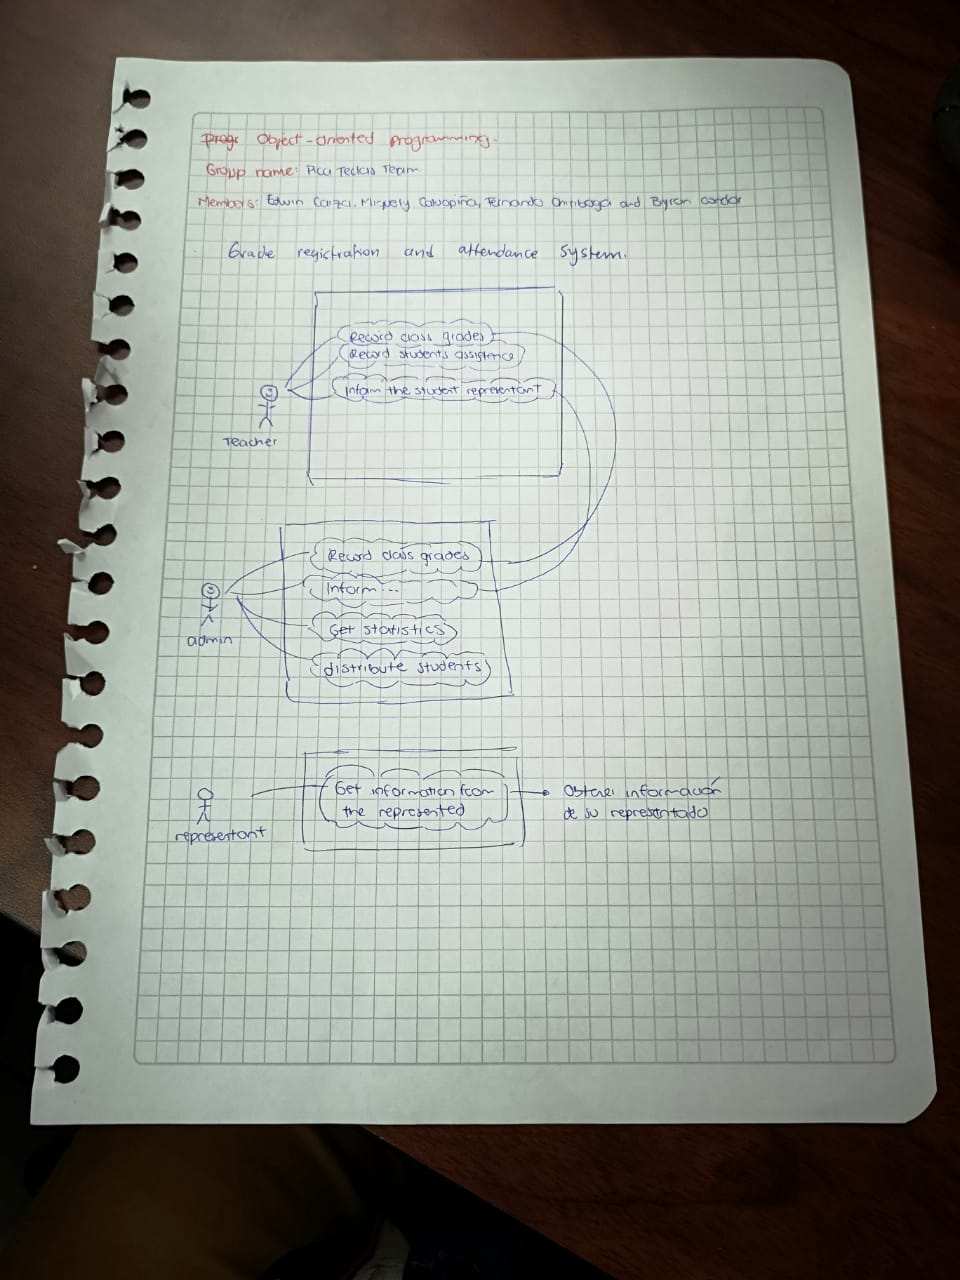 Object-Oriented programming.
Group name: Pica Teclas Team
Members: Edwin Caiza, Miquely Calvopiña, Fernando Chiriboga and Byron Condor
Grade registration and attendance system.
Record class grades
Record students assistence
Inform the student representant
Teacher
Record class grades
Inform...
Get statistics
distribute students
admin
Get information from
the represented
representant
Obtener información
de su representado